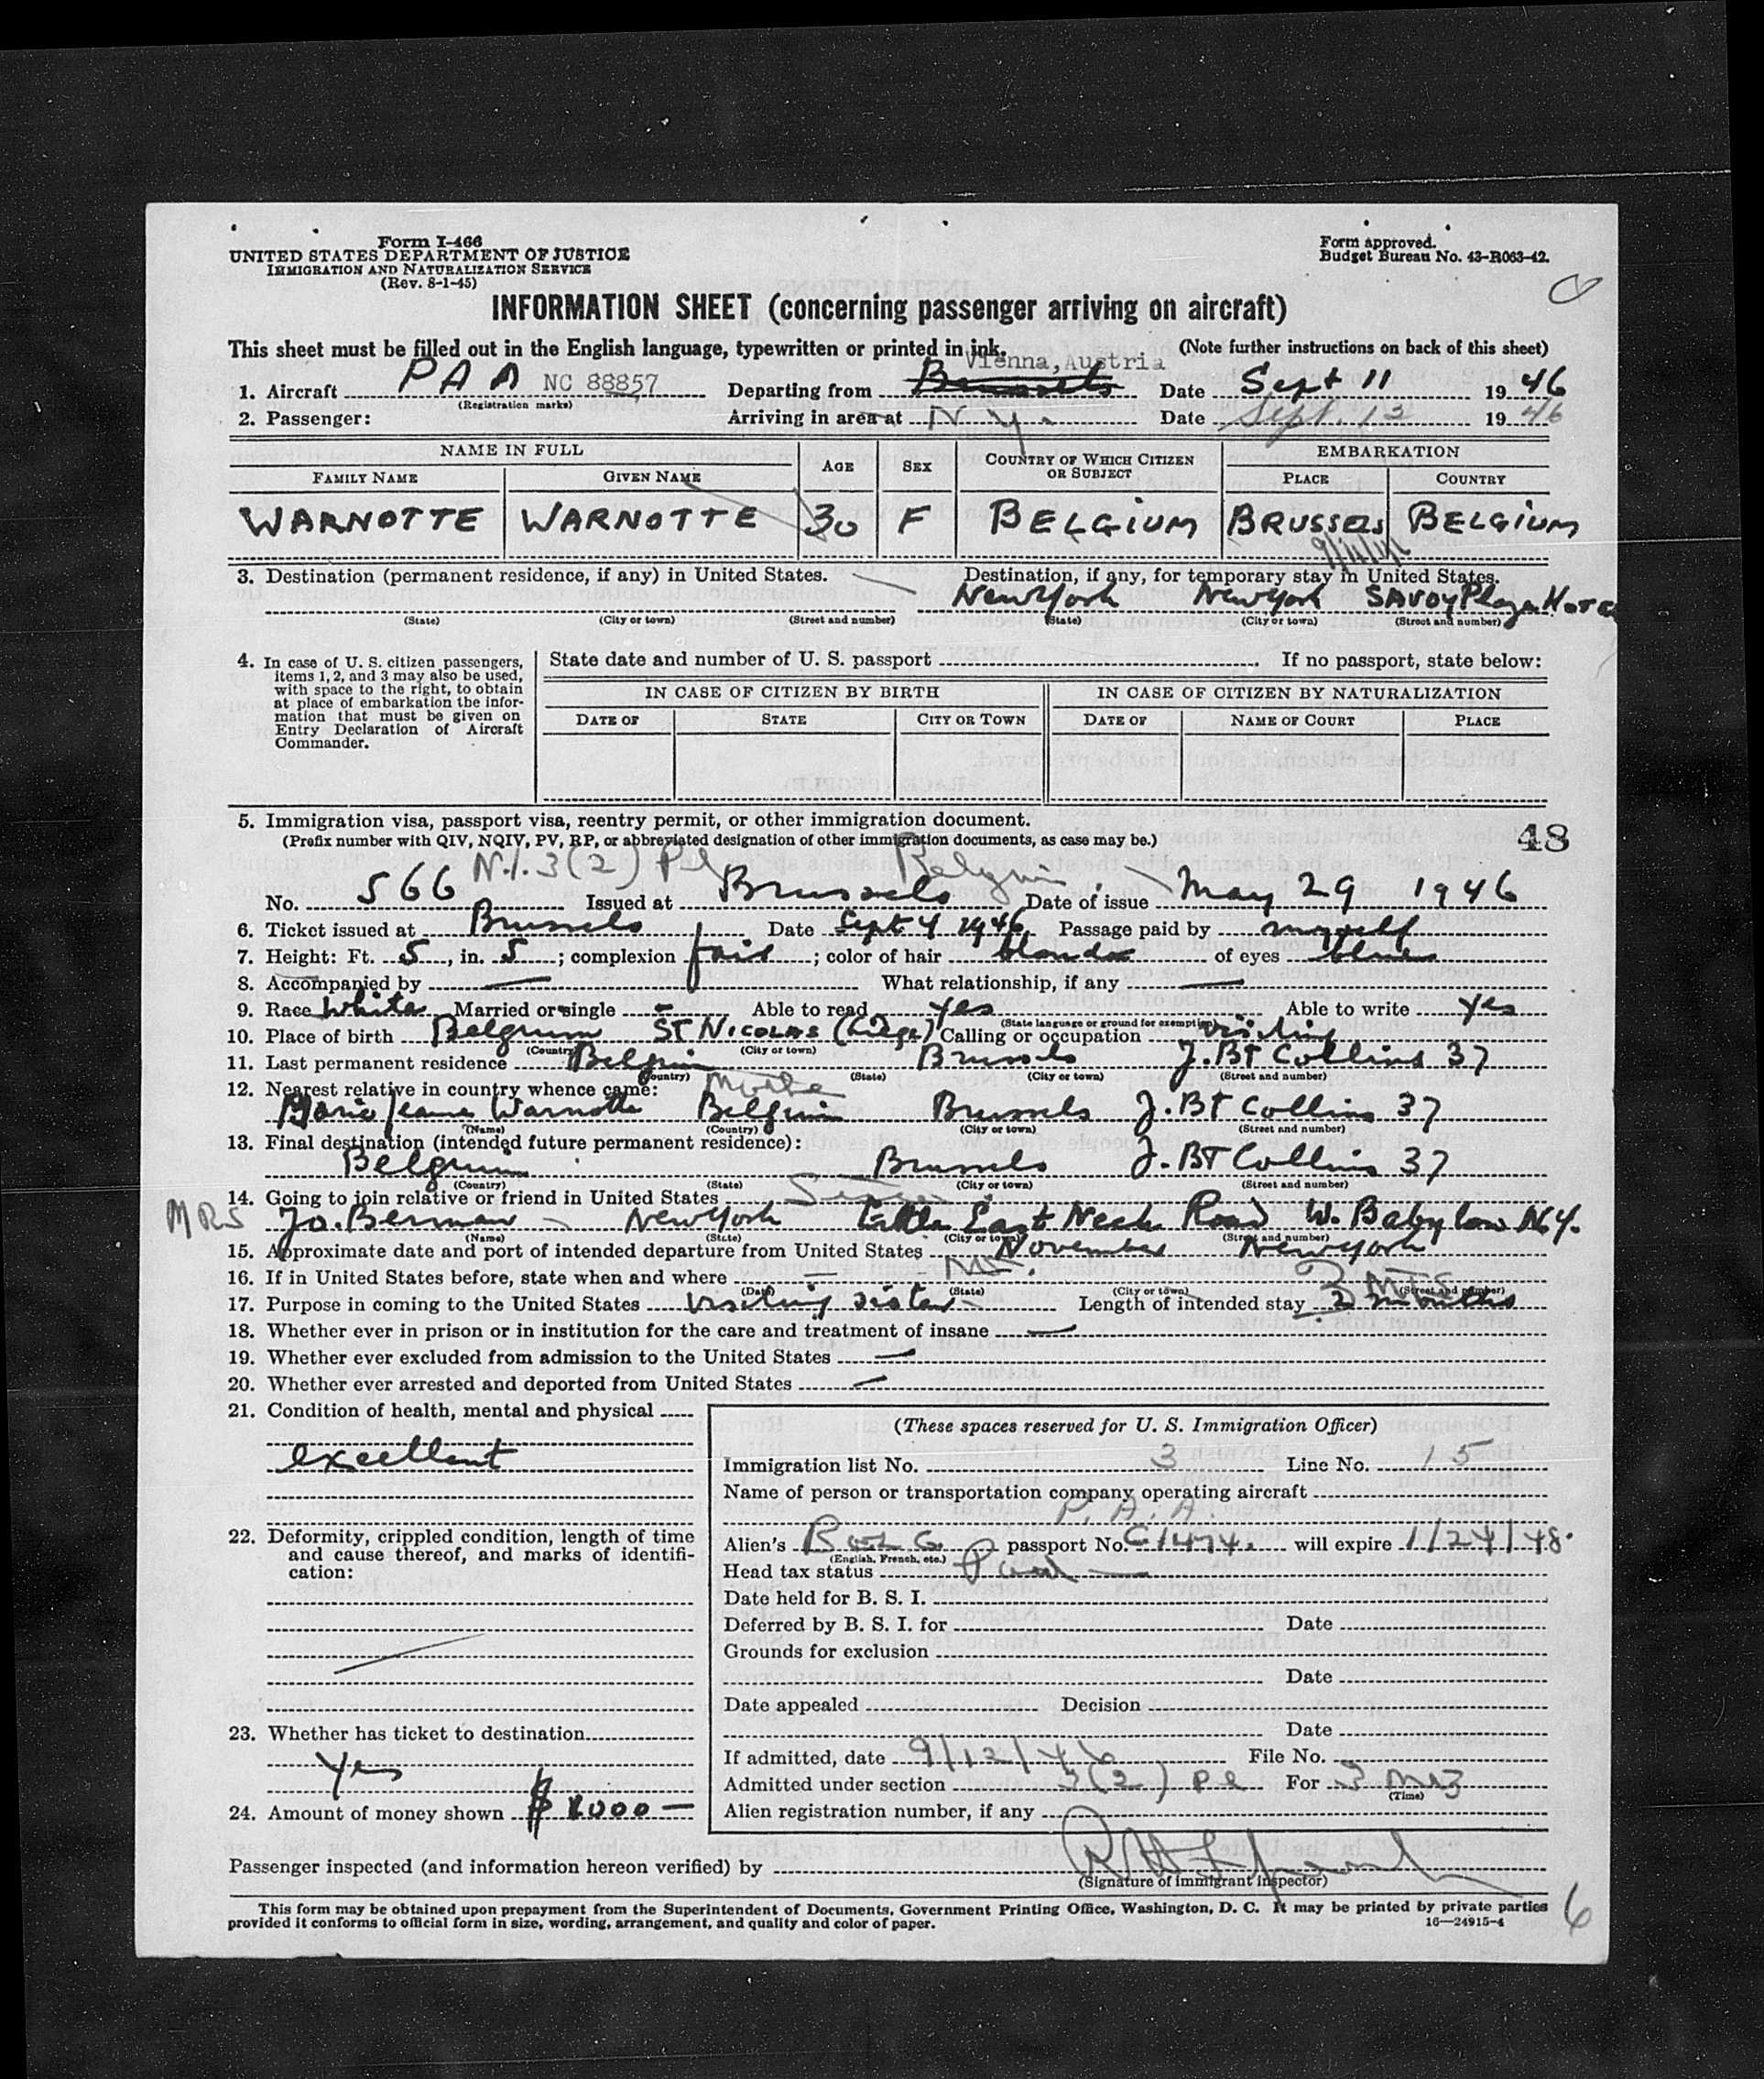 Form I-466
UNITED STATES DEPARTMENT OF JUSTICE
IMMIGRATION AND NATURALIZATION SERVICE
(Rev. 8-1-45)
Form approved.
Budget Bureau No. 43-R063-42.
INFORMATION SHEET (concerning passenger arriving on aircraft)
This sheet must be filled out in the English language, typewritten or printed in ink.
(Note further instructions on back of this sheet)
Vienna, Austria
1. Aircraft PAA NC 88857 Departing from Brussels Date Sept 11 1946
(Registration marks)
2. Passenger: Arriving in area at N.Y. Date Sept. 12 1946
NAME IN FULL AGE SEX COUNTRY OF WHICH CITIZEN OR SUBJECT EMBARKATION
FAMILY NAME GIVEN NAME PLACE COUNTRY
WARNOTTE WARNOTTE 30 F BELGIUM BRUSSELS BELGIUM
3. Destination (permanent residence, if any) in United States. Destination, if any, for temporary stay in United States.
New York New York SAVOY Plaza
(State) (City or town) (Street and number) (State) (City or town) (Street and number)
4. In case of U. S. citizen passengers, items 1, 2, and 3 may also be used, with space to the right, to obtain at place of embarkation the information that must be given on Entry Declaration of Aircraft Commander.
State date and number of U. S. passport If no passport, state below:
IN CASE OF CITIZEN BY BIRTH IN CASE OF CITIZEN BY NATURALIZATION
DATE OF STATE CITY OR TOWN DATE OF NAME OF COURT PLACE
5. Immigration visa, passport visa, reentry permit, or other immigration document.
(Prefix number with QIV, NQIV, PV, RP, or abbreviated designation of other immigration documents, as case may be.)
48
3(2) Belgium
No. 566 Issued at Brussels Date of issue May 29 1946
6. Ticket issued at Brussels Date Sept 4 1946 Passage paid by myself
7. Height: Ft. 5, in. 5; complexion fair; color of hair blonde of eyes blue
8. Accompanied by — What relationship, if any —
9. Race White Married or single - Able to read yes Able to write yes
(State language or ground for exemption)
10. Place of birth Belgium ST NICOLAS (Liege) Calling or occupation visiting
(Country) (City or town)
11. Last permanent residence Belgium Brussels J. BT Collins 37
(Country) (State) (City or town) (Street and number)
12. Nearest relative in country whence came: Mother
Marie Jeanne Warnotte Belgium Brussels J. BT Collins 37
(Name) (Country) (City or town) (Street and number)
13. Final destination (intended future permanent residence):
Belgium Brussels J. BT Collins 37
(Country) (State) (City or town) (Street and number)
14. Going to join relative or friend in United States Sister
MRS Jo. Berman New York Little East Neck Road W. Babylon N.Y.
(Name) (State) (City or town) (Street and number)
15. Approximate date and port of intended departure from United States November New York
16. If in United States before, state when and where —
(Date) (State) (City or town) (Street and number)
3 MTS
17. Purpose in coming to the United States visiting sister Length of intended stay 2 months
18. Whether ever in prison or in institution for the care and treatment of insane —
19. Whether ever excluded from admission to the United States —
20. Whether ever arrested and deported from United States —
21. Condition of health, mental and physical
excellent
22. Deformity, crippled condition, length of time and cause thereof, and marks of identification:
23. Whether has ticket to destination
Yes
24. Amount of money shown $ 1000 —
(These spaces reserved for U. S. Immigration Officer)
Immigration list No. 3 Line No. 15
Name of person or transportation company operating aircraft
P. A. A.
Alien's Belg passport No. C1474. will expire 1/24/48.
(English, French, etc.)
Head tax status Paid —
Date held for B. S. I.
Deferred by B. S. I. for Date
Grounds for exclusion
Date
Date appealed Decision
Date
If admitted, date 9/12/46 File No.
Admitted under section 3(2) pl For 3 Mos
(Time)
Alien registration number, if any
Passenger inspected (and information hereon verified) by
(Signature of immigrant inspector)
This form may be obtained upon prepayment from the Superintendent of Documents, Government Printing Office, Washington, D. C. It may be printed by private parties
provided it conforms to official form in size, wording, arrangement, and quality and color of paper.
16—24915-4
6